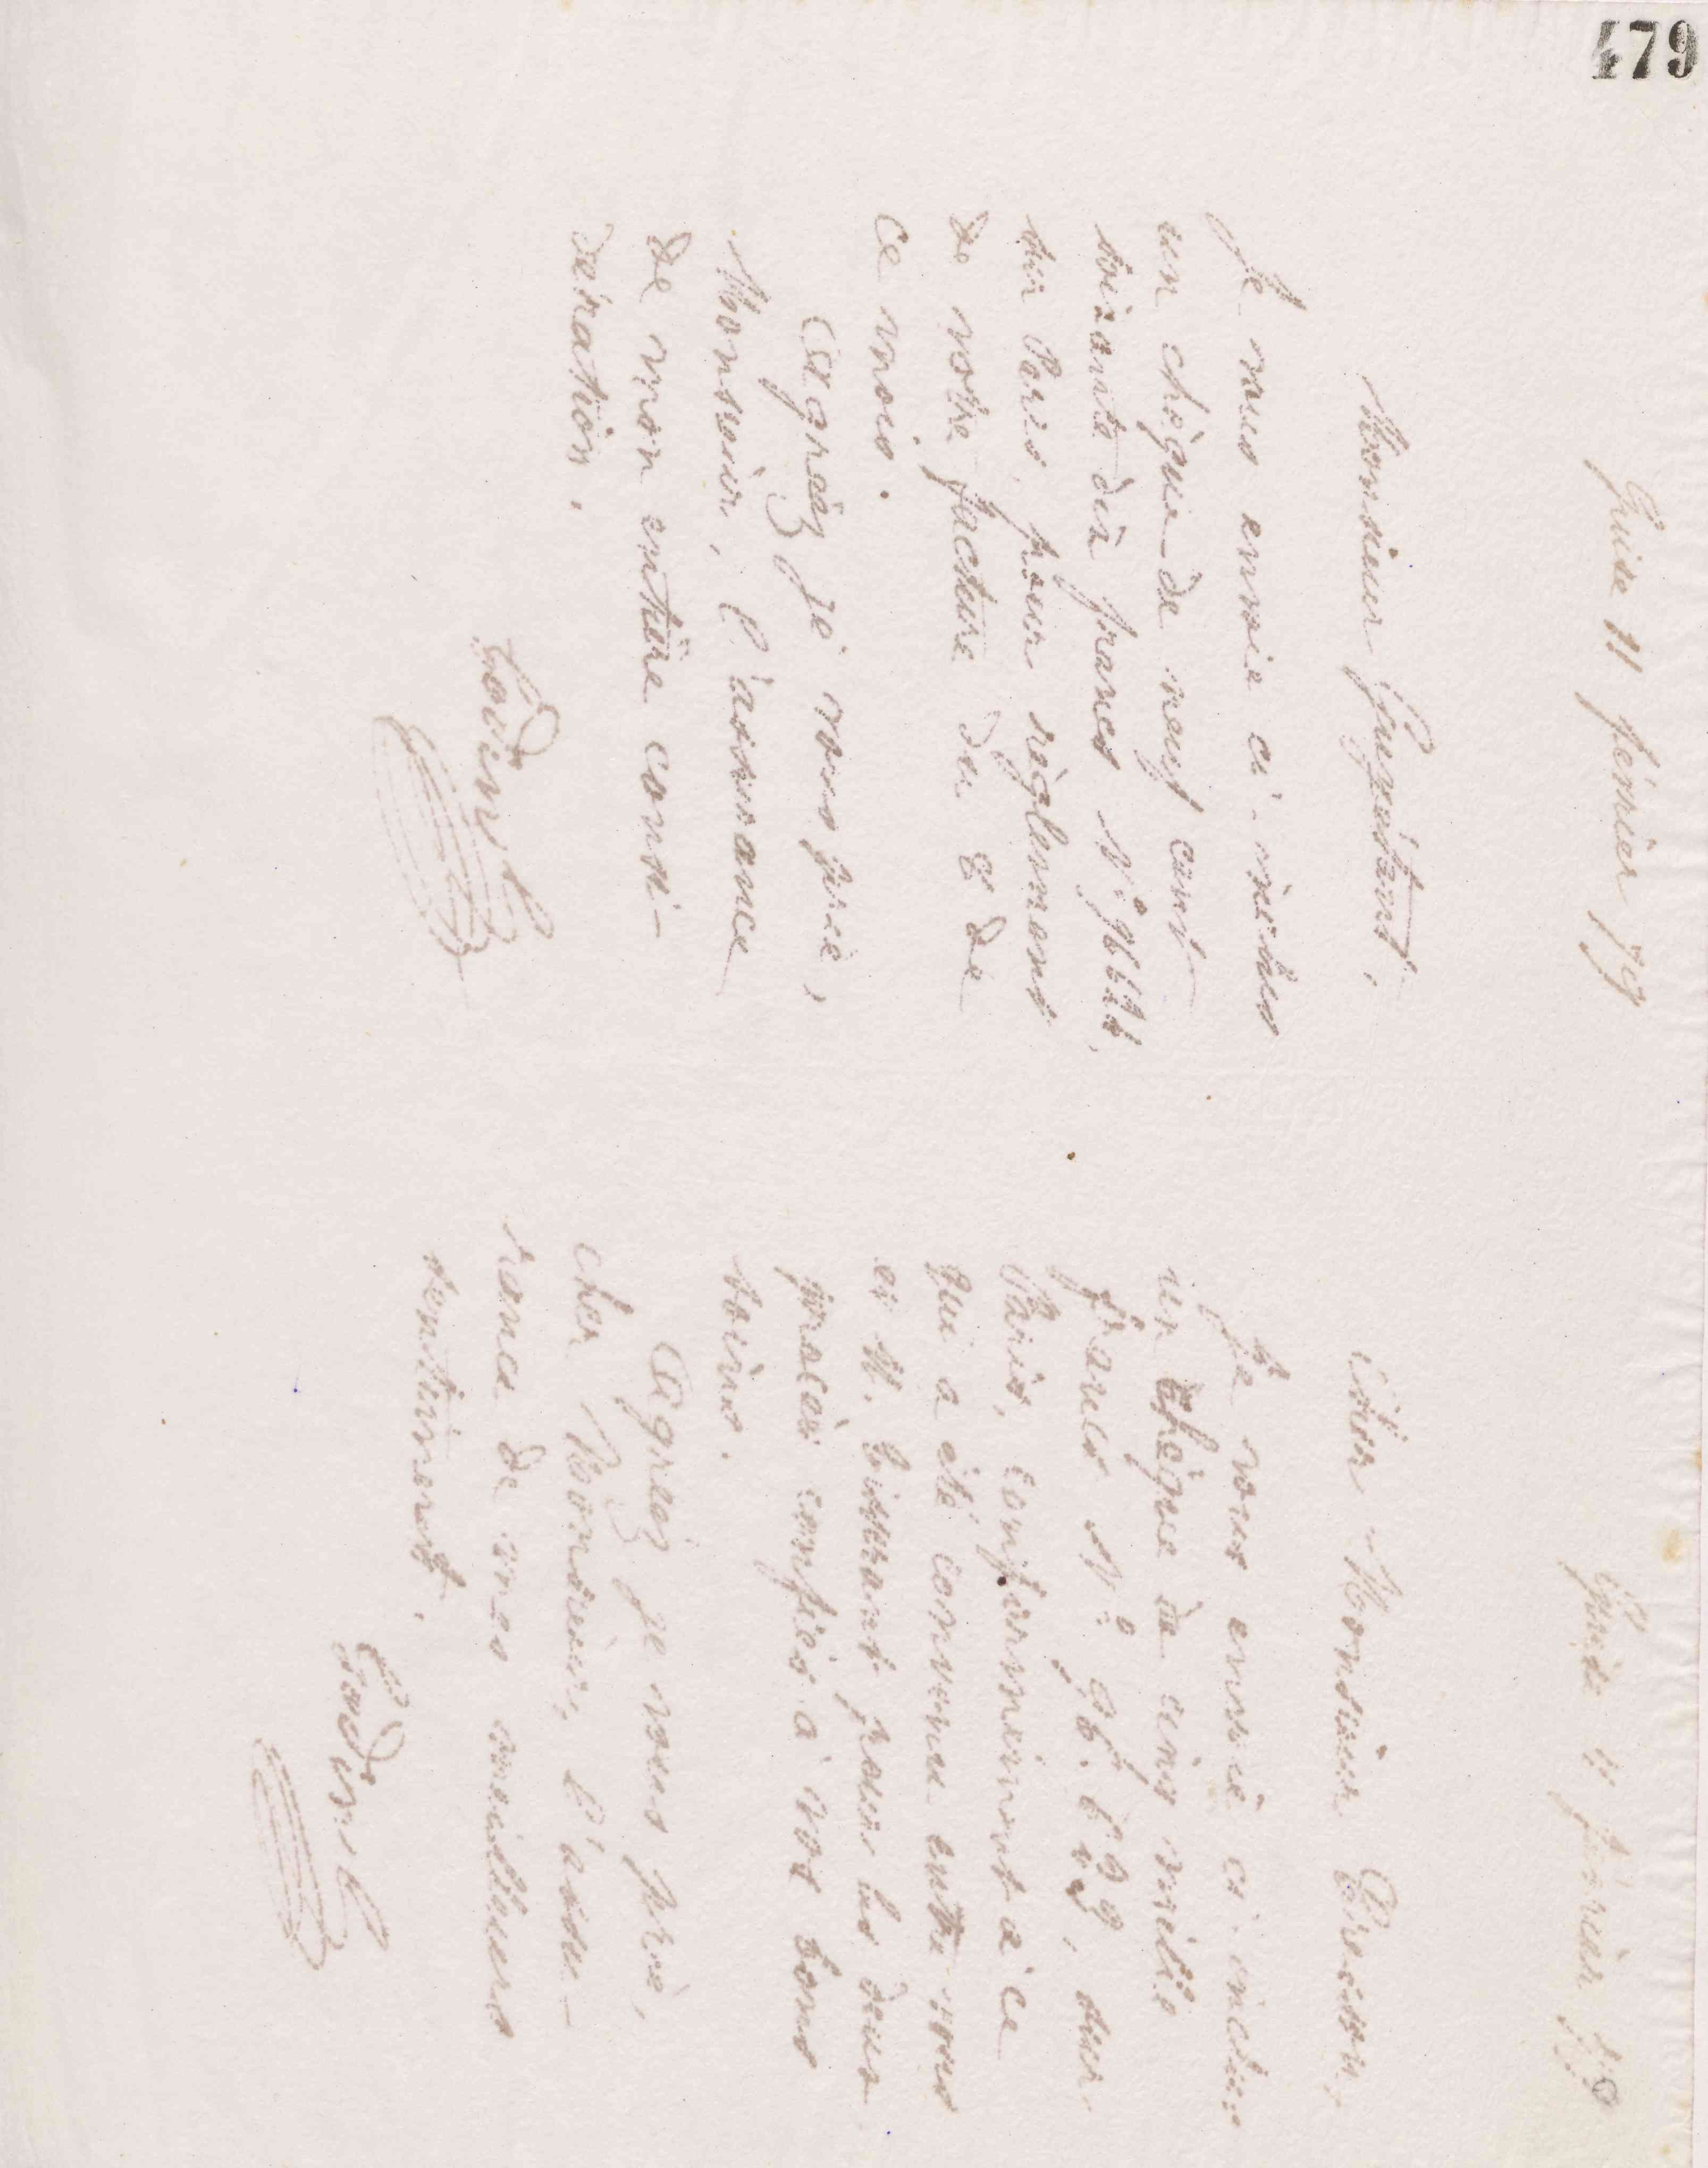 479
Guise 11 février 79
Monsieur Guyostant,
Je vous envoie ci-inclus
un chèque de neuf cent
soixante dix francs N°
sur Paris, pour règlement
de votre facture du 8 de
ce mois.
Agréez je vous prie,
Monsieur, l'assurance
de mon entière consi-
dération.
Godin
Guise 11 février 79
Cher Monsieur
Je vous envoie ci-inclus
un chèque de cinq mille
francs N° sur
Paris, conformément à ce
qui a été convenu entre vous
et M. pour les deux
procès confiés à vos bons
soins.
Agréez je vous prie,
cher Monsieur, l'assu-
rance de mes meilleurs
sentiments.
Godin